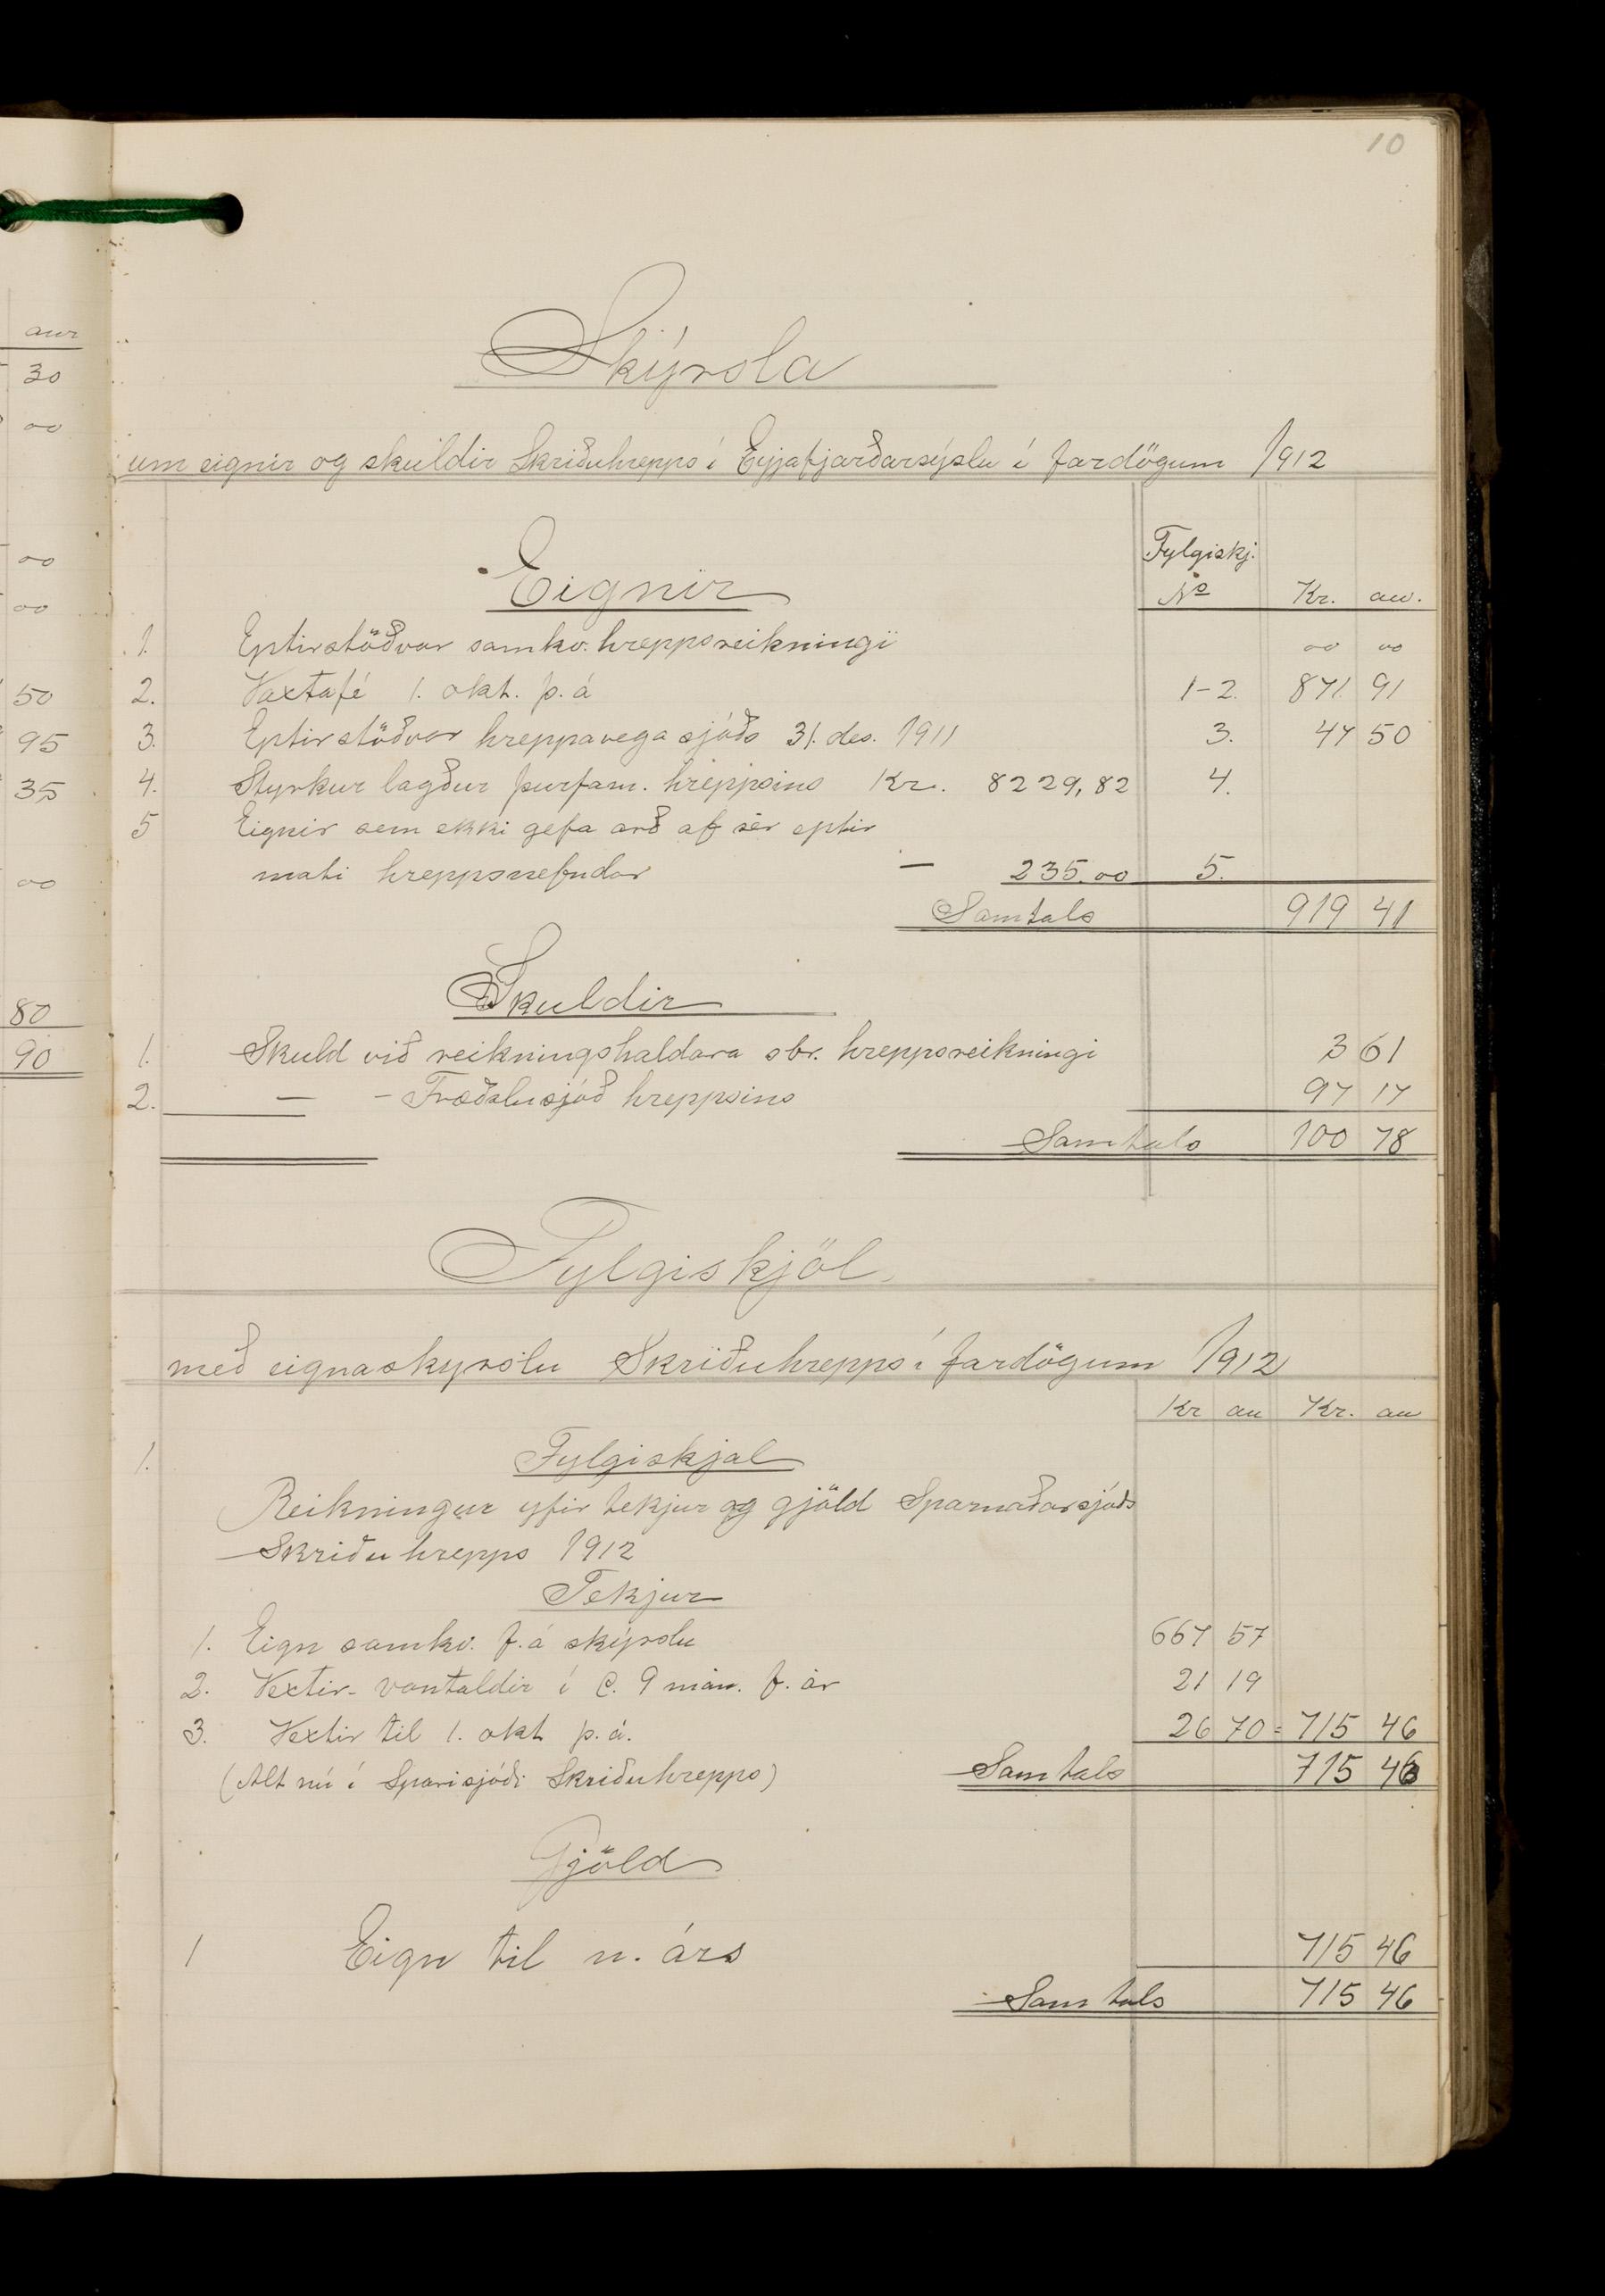 10
aur
30
oo
oo
oo
50
95
35
oo
80
90
Skýrsla
um eignir og skuldir Skriðuhrepps í Eyjafjarðarsýslu í fardögum 1912
Eignir
Fylgiskj.
No Kr. au.
1. Eptirstöðvar samkv. hreppsreikningi oo oo
2. Vaxtafé 1. okt. þ. á 1-2. 871. 91
3. Eptirstöðvar hreppavegasjóðs 31. des. 1911 3. 47 50
4. Styrkur lagður þurfam. hreppsins Kr. 8229,82 4.
5 Eignir sem ekki gefa arð af sér eptir
mati hreppsnefndar — 235.oo 5.
Samtals 919 41
Skuldir
1. Skuld við reikningshaldara sbr. hreppsreikningi 3 61
2. — - Fræðslusjóð hreppsins 97 17
Samtals 100 78
Fylgiskjöl
með eignaskyrslu Skriðuhrepps í fardögum 1912
Kr au Kr. au
1. Fylgiskjal
Reikningur yfir tekjur og gjöld Sparnaðarsjóðs
Skriðuhrepps 1912
Tekjur
1. Eign samkv. f. á skýrslu 667 57
2. Vextir vantaldir í C. 9 mán. f. ár 21 19
3. Vextir til 1. okt þ. á. 26 70 = 715 46
(Alt nú í Sparisjóði Skriðuhrepps) Samtals 715 46
Gjöld
1 Eign til n. árs 715 46
Samtals 715 46